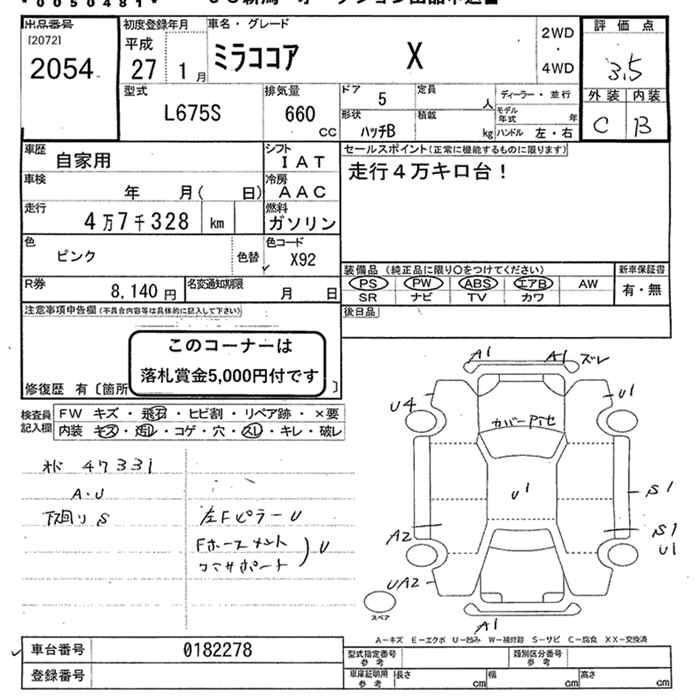 0050481
出品番号 [2072] 2054
初度登録年月 平成 27年 1月
車名・グレード ミラココア X
2WD ・ 4WD
評価点 3.5
外装 内装
C B
型式 L675S
排気量 660 CC
ドア 5
定員 人
ディーラー・並行
形状 ハッチB
積載 kg
モデル年式 年
ハンドル 左・右
車歴 自家用
シフト IAT
セールスポイント(正常に機能するものに限ります)
走行4万キロ台!
車検 年 月( 日)
冷房 AAC
走行 4万7千328 km
燃料 ガソリン
色 ピンク 色替
色コード X92
装備品(純正品に限り○をつけてください)
新車保証書
PS PW ABS エアB AW
有・無
SR ナビ TV カワ
R券 8,140円
名変通知期限 月 日
後日品
注意事項申告欄(不具合内容等は具体的に記入して下さい)
このコーナーは
落札賞金5,000円付です
修復歴 有〔箇所 〕
検査員記入欄
FW キズ・飛石・ヒビ割・リペア跡・×要
内装 キズ・汚れ・コゲ・穴・スレ・キレ・破レ
オド 47331
A・U
下回り S
左Fピラー U
U
A1 A1 ズレ
U4 U1
U1
S1
A2 S1
U1
UA2
A1
スペア
A-キズ E-エクボ U-凹み W-補修跡 S-サビ C-腐食 XX-交換済
車台番号 0182278
登録番号
型式指定番号 参考
類別区分番号 参考
車庫証明用 参考 長さ cm 幅 cm 高さ cm